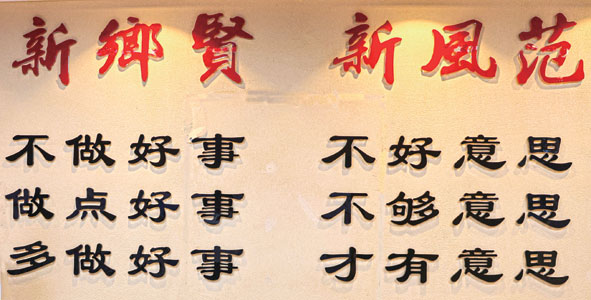 新鄉賢 新風范
不做好事 不好意思
做点好事 不够意思
多做好事 才有意思